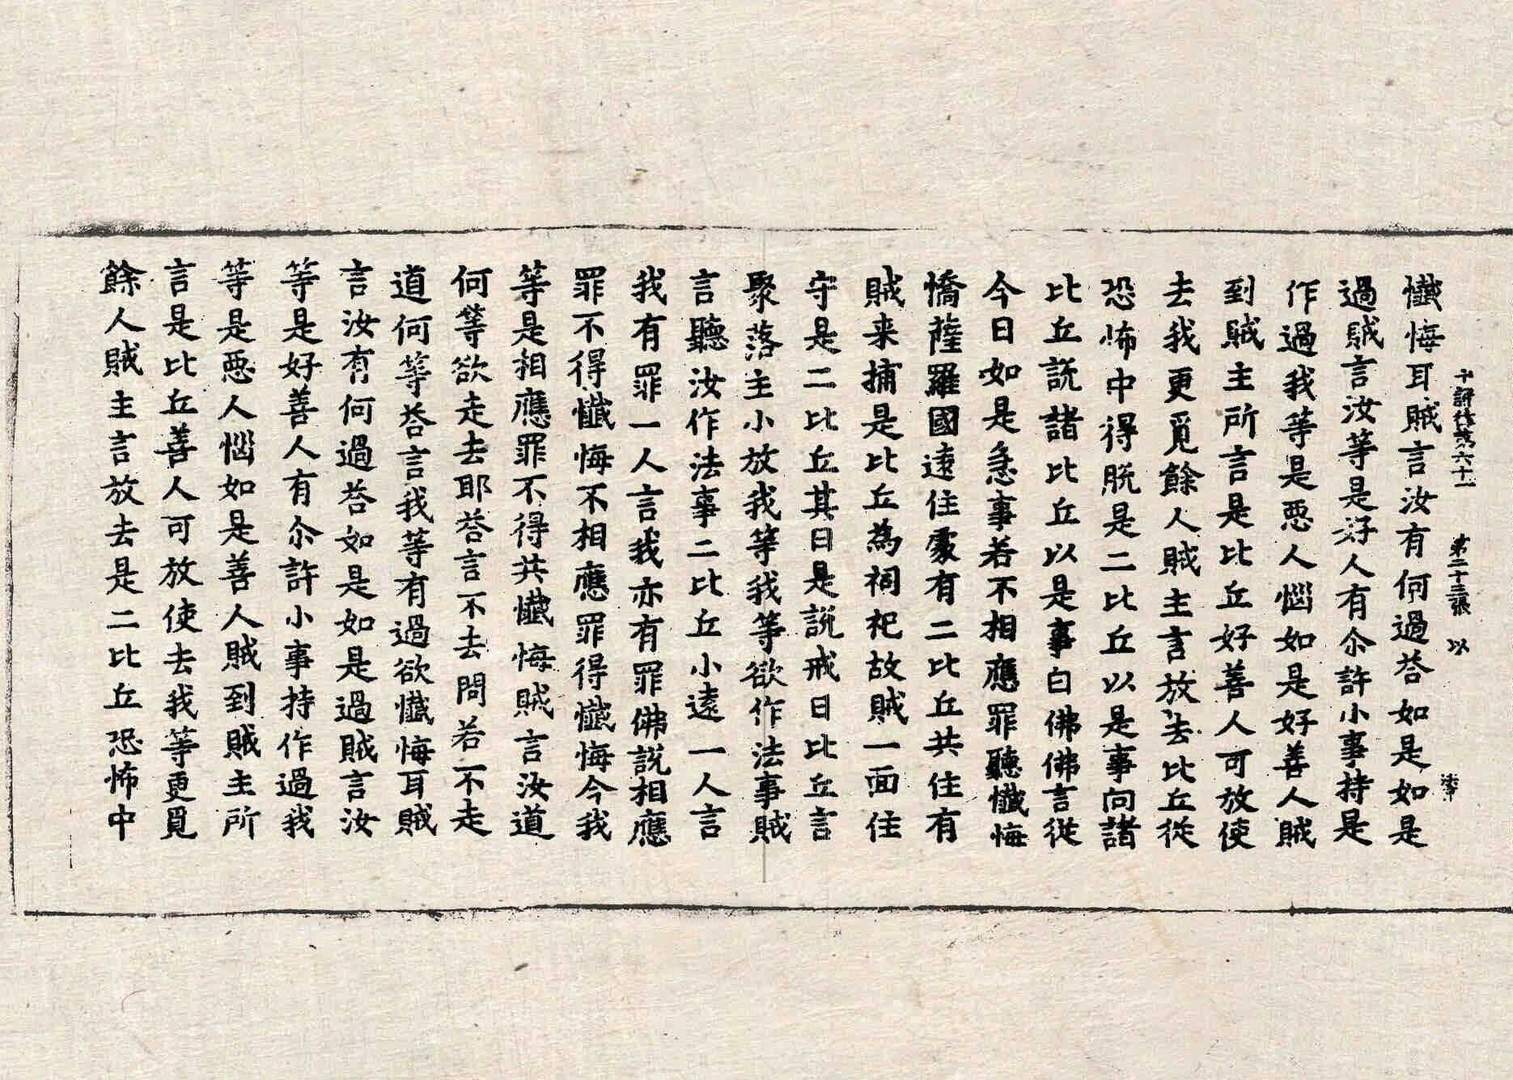 十誦律苐六十一 第二十三張 以
懴悔耳賊言汝有何過荅如是如是
過賊言汝等是好人有尒許小事持是
作過我等是惡人惱如是好善人賊
到賊主所言是比丘好善人可放使
去我更覓餘人賊主言放去比丘從
恐怖中得脫是二比丘以是事向諸
比丘說諸比丘以是事白佛佛言從
今日如是急事若不相應罪聽懴悔
憍薩羅國遠住處有二比丘共住有
賊来捕是比丘為祠祀故賊一面住
守是二比丘其日是說戒日比丘言
聚落主小放我等我等欲作法事賊
言聽汝作法事二比丘小遠一人言
我有罪一人言我亦有罪佛說相應
罪不得懴悔不相應罪得懴悔今我
等是相應罪不得共懴悔賊言汝道
何等欲走去耶荅言不去問若不走
道何等荅言我等有過欲懴悔耳賊
言汝有何過荅如是如是過賊言汝
等是好善人有尒許小事持作過我
等是惡人惱如是善人賊到賊主所
言是比丘善人可放使去我等更覓
餘人賊主言放去是二比丘恐怖中